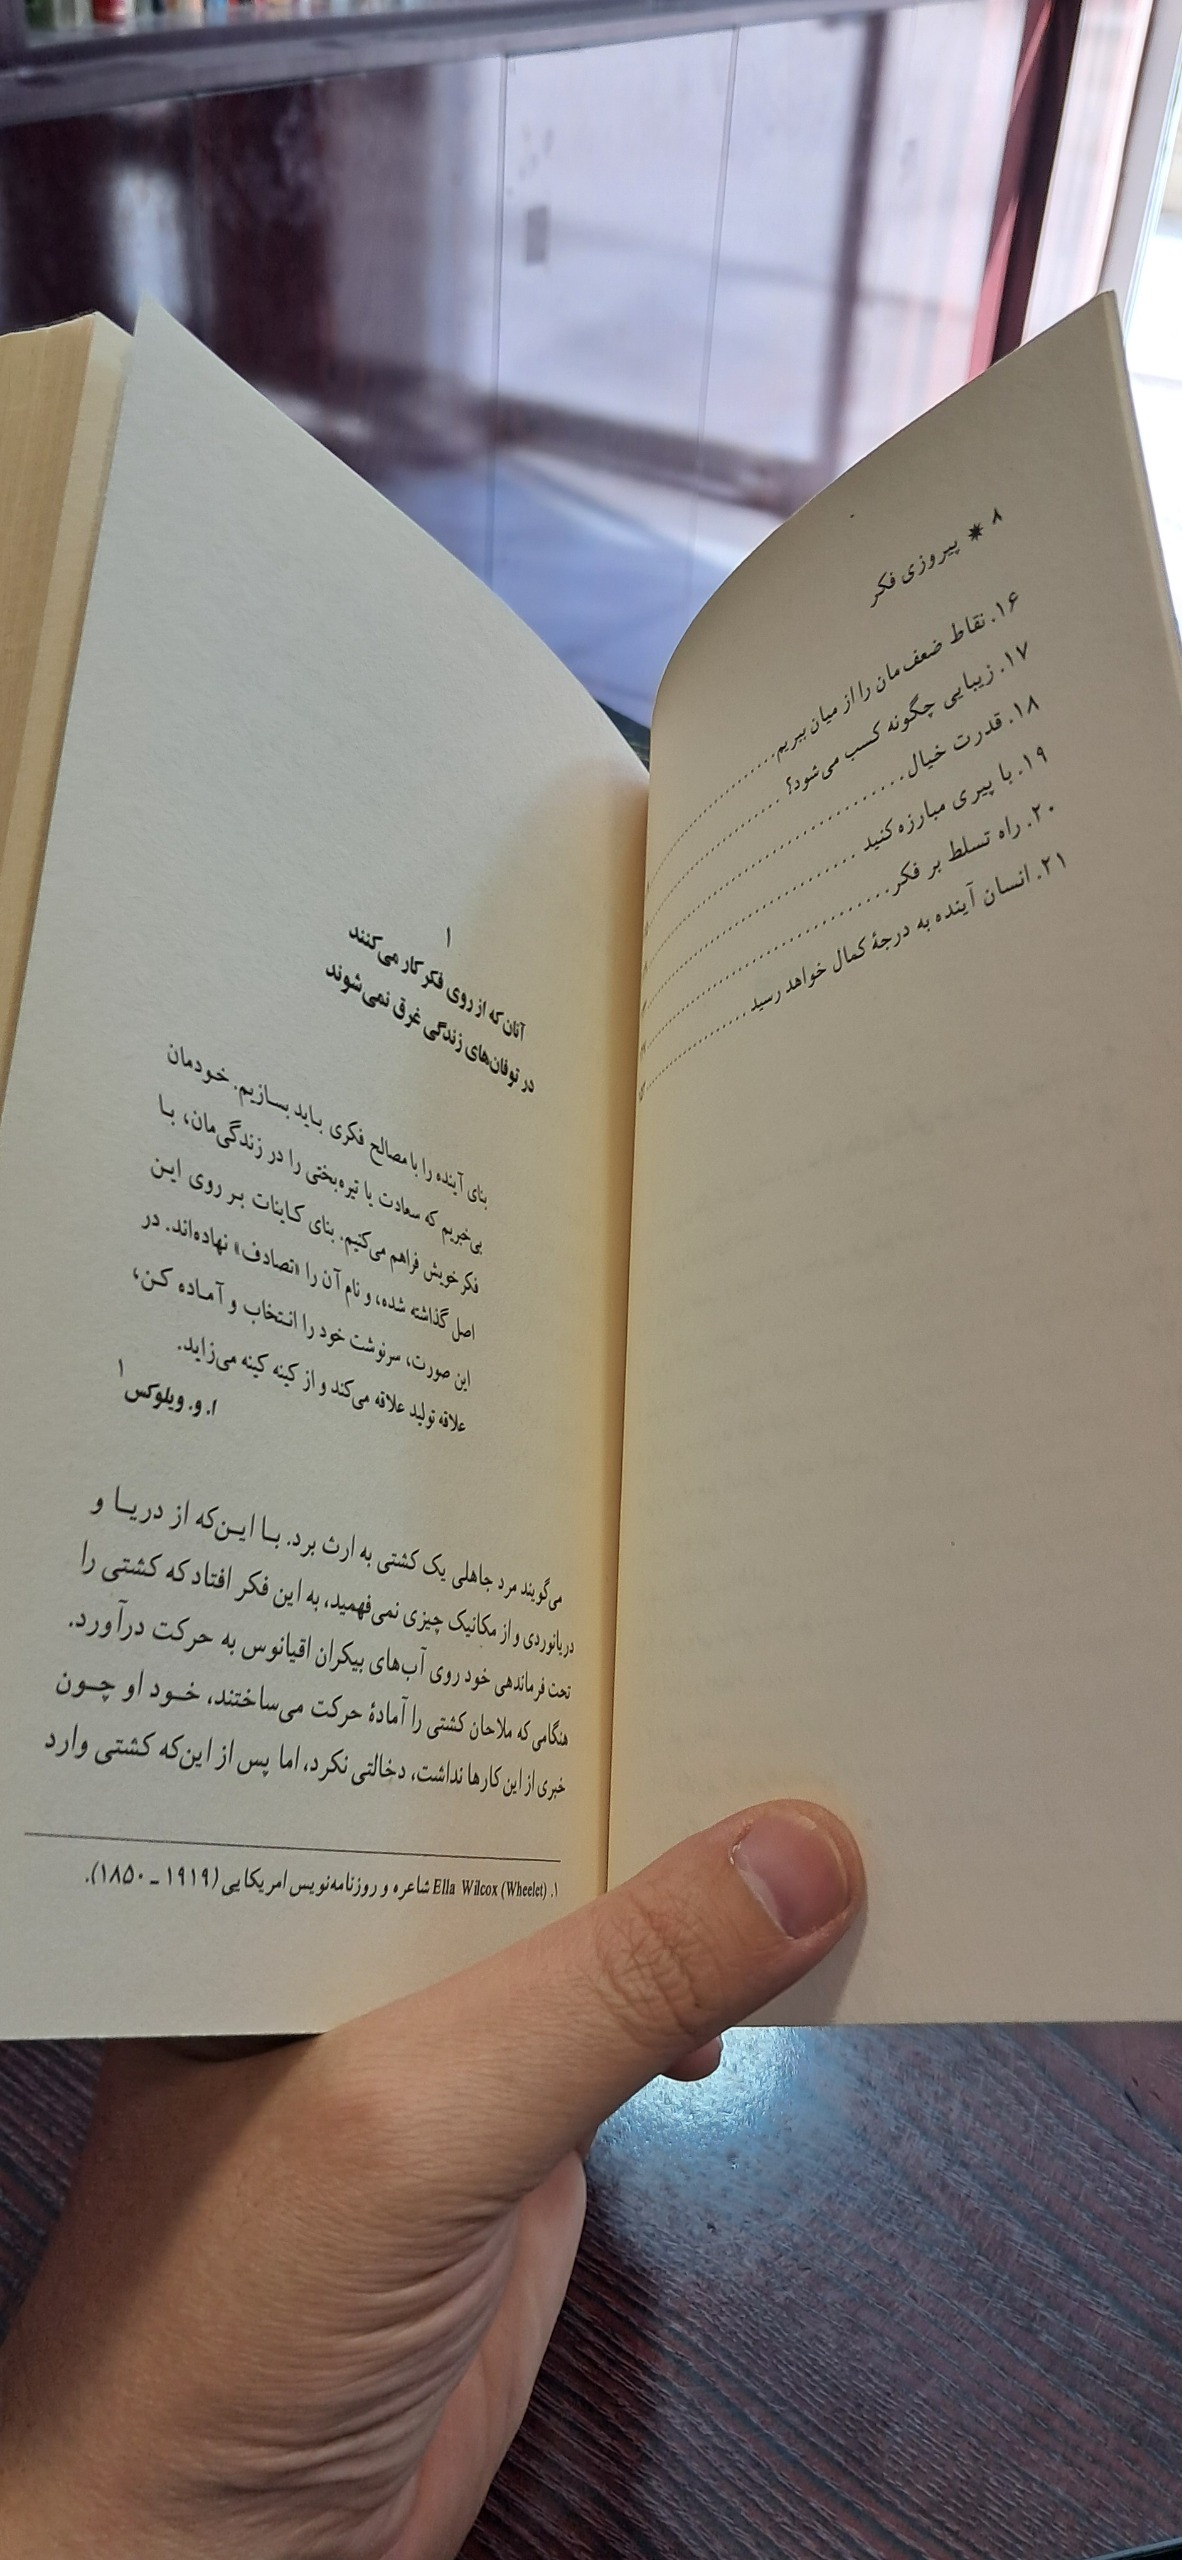 ۸ * پیروزی فکر
۱۶. نقاط ضعف‌مان را از میان ببریم
۱۷. زیبایی چگونه کسب می‌شود؟
۱۸. قدرت خیال
۱۹. با پیری مبارزه کنید
۲۰. راه تسلط بر فکر
۲۱. انسان آینده به درجهٔ کمال خواهد رسید
۱
آنان که از روی فکر کار می‌کنند
در توفان‌های زندگی غرق نمی‌شوند
بنای آینده را با مصالح فکری باید بسازیم. خودمان
بی‌خبریم که سعادت یا تیره‌بختی را در زندگی‌مان، با
فکر خویش فراهم می‌کنیم. بنای کاینات بر روی این
اصل گذاشته شده، و نام آن را «تصادف» نهاده‌اند. در
این صورت، سرنوشت خود را انتخاب و آماده کن،
علاقه تولید علاقه می‌کند و از کینه کینه می‌زاید.
ا. و. ویلوکس۱
می‌گویند مرد جاهلی یک کشتی به ارث برد. با این‌که از دریا و
دریانوردی و از مکانیک چیزی نمی‌فهمید، به این فکر افتاد که کشتی را
تحت فرماندهی خود روی آب‌های بیکران اقیانوس به حرکت درآورد.
هنگامی که ملاحان کشتی را آمادهٔ حرکت می‌ساختند، خود او چون
خبری از این کارها نداشت، دخالتی نکرد، اما پس از این‌که کشتی وارد
۱. Ella Wilcox (Wheelet) شاعره و روزنامه‌نویس امریکایی (۱۹۱۹ ـ ۱۸۵۰).